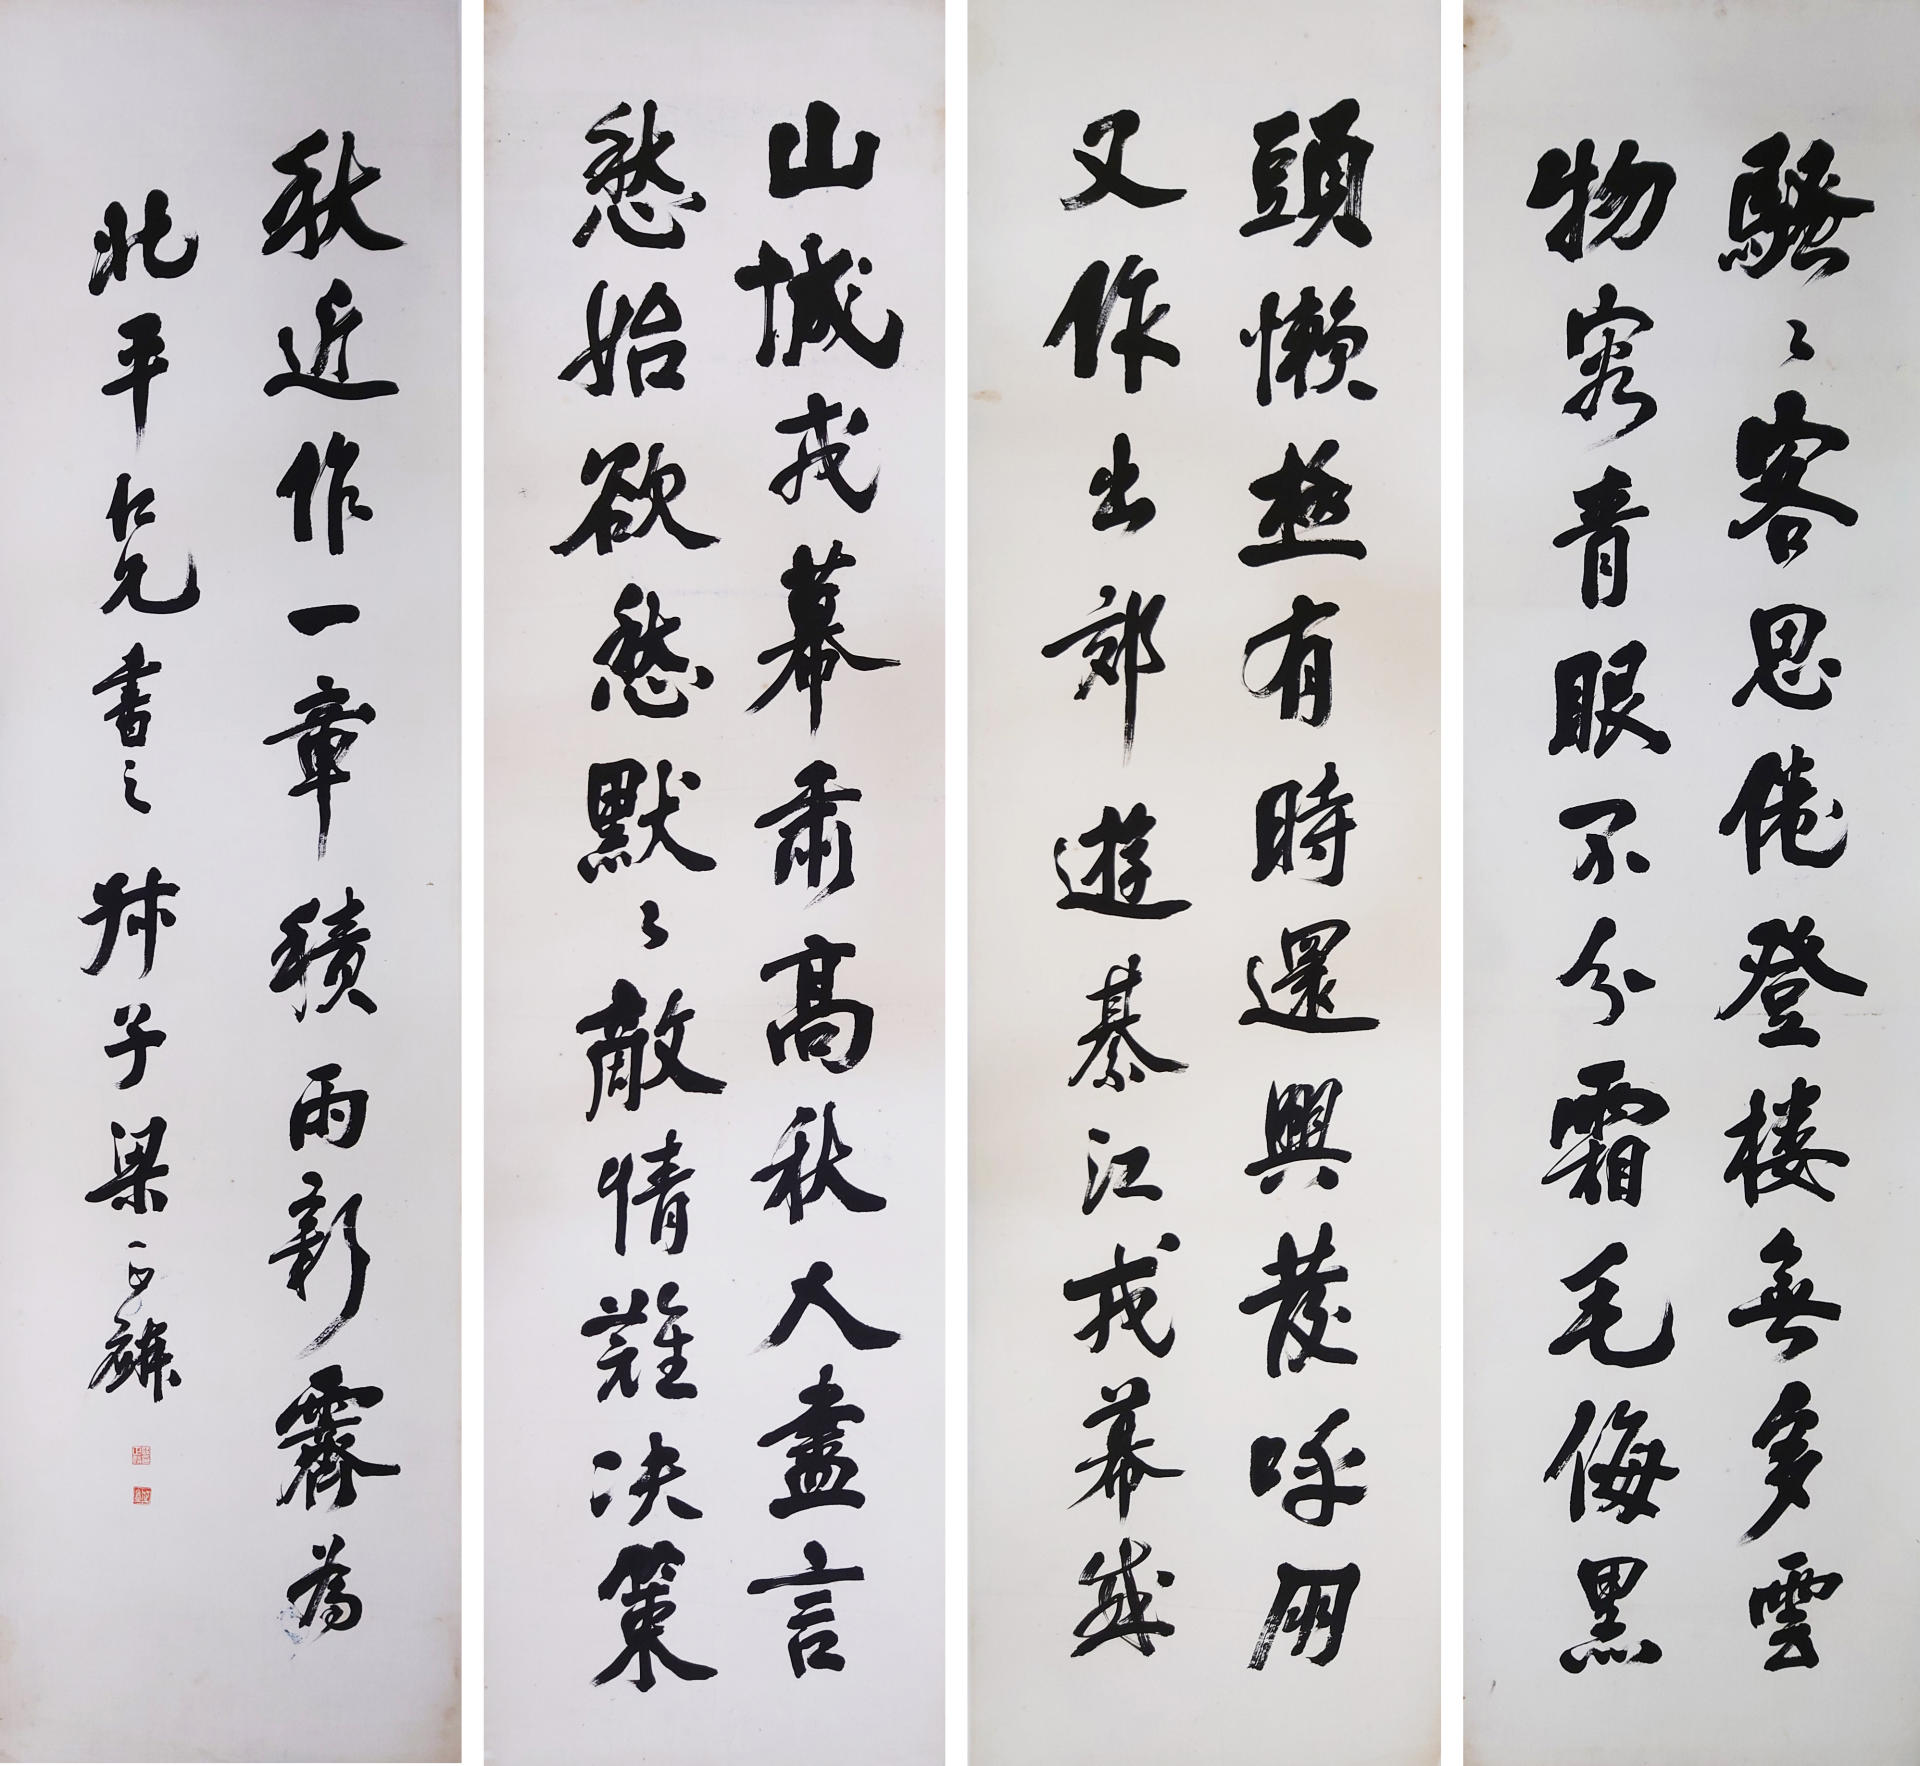 騷々客思倦登楼無多雲
物容青眼不分霜毛侮黑
頭懶極有時還興發呼朋
又作出郊遊綦江戎幕感
山城戎幕肅高秋人盡言
愁始欲愁默々敵情難決策
秋近作一章積雨新霽為
北平仁兄書之 叔子梁正麟